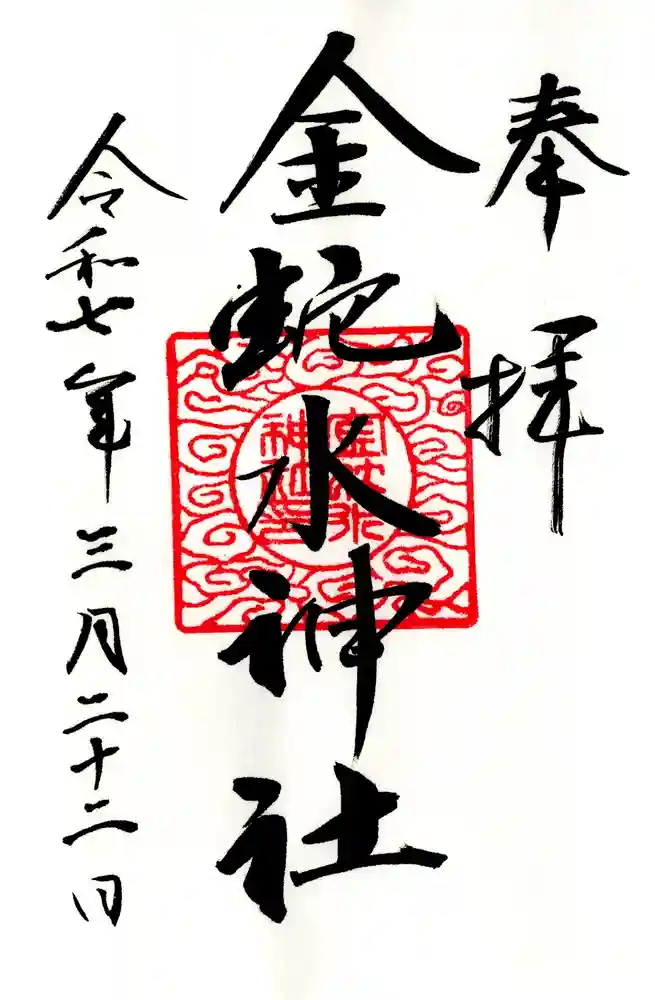 奉拝
金蛇水神社
令和七年三月二十二日